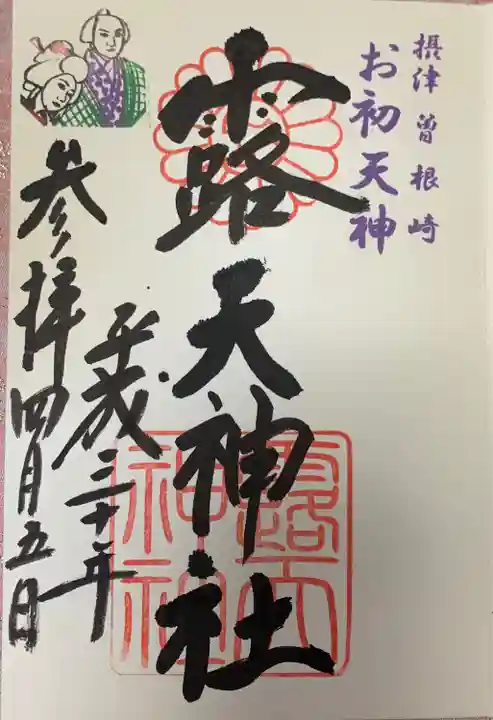 摂津 曽根崎
お初天神
露天神社
平成三十年
参拝 四月五日
露天
神社